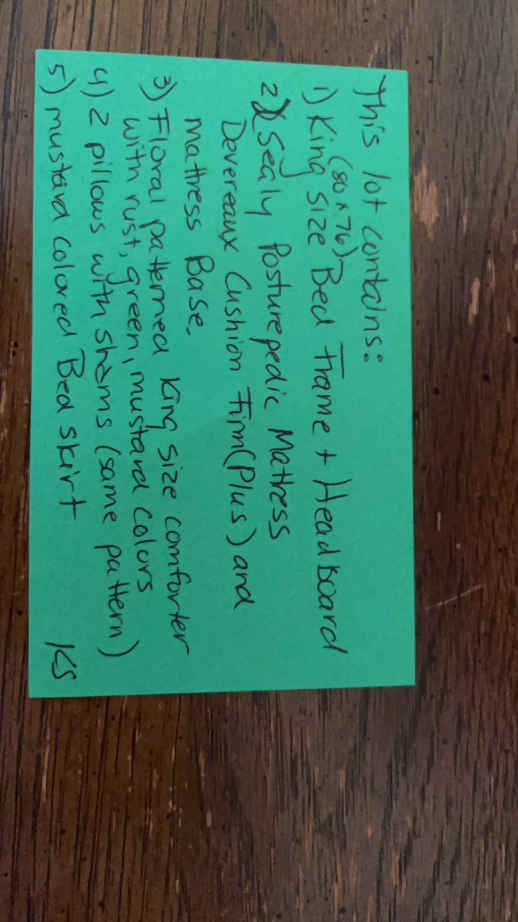 This lot contains:
(80 x 76)
1) King size Bed Frame + Headboard
2) Sealy Posturepedic Mattress
Devereaux Cushion Firm (Plus) and
Mattress Base.
3) Floral patterned King size comforter
with rust, green, mustard colors
4) 2 pillows with shams (same pattern)
5) mustard colored Bed skirt
KS